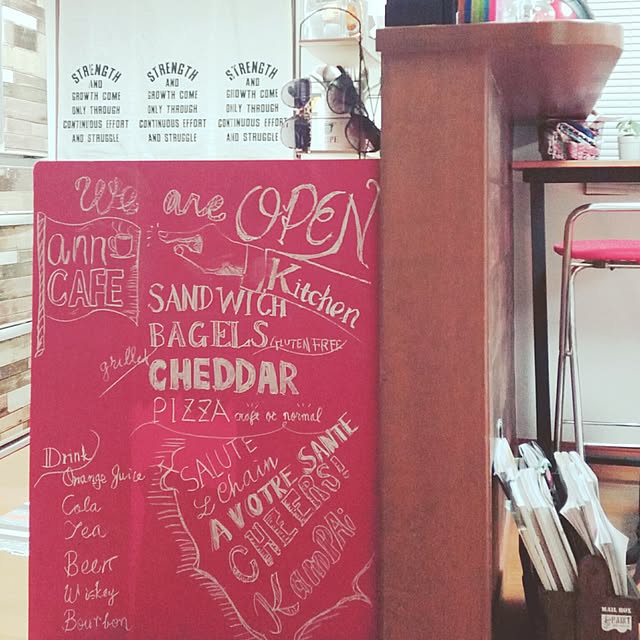 STRENGTH
AND
GROWTH COME
ONLY THROUGH
CONTINUOUS EFFORT
AND STRUGGLE
STRENGTH
AND
GROWTH COME
ONLY THROUGH
CONTINUOUS EFFORT
AND STRUGGLE
STRENGTH
AND
GROWTH COME
ONLY THROUGH
CONTINUOUS EFFORT
AND STRUGGLE
We are OPEN
ann
CAFE
Kitchen
SANDWICH
BAGELS GLUTEN FREE
grilled
CHEDDAR
PIZZA
or normal
Drink
Orange Juice
Cola
Tea
Beer
Wiskey
Bourbon
SALUTE
L chain
A VOTRE SANTE
CHEERS!
KamPAi
MAIL BOX